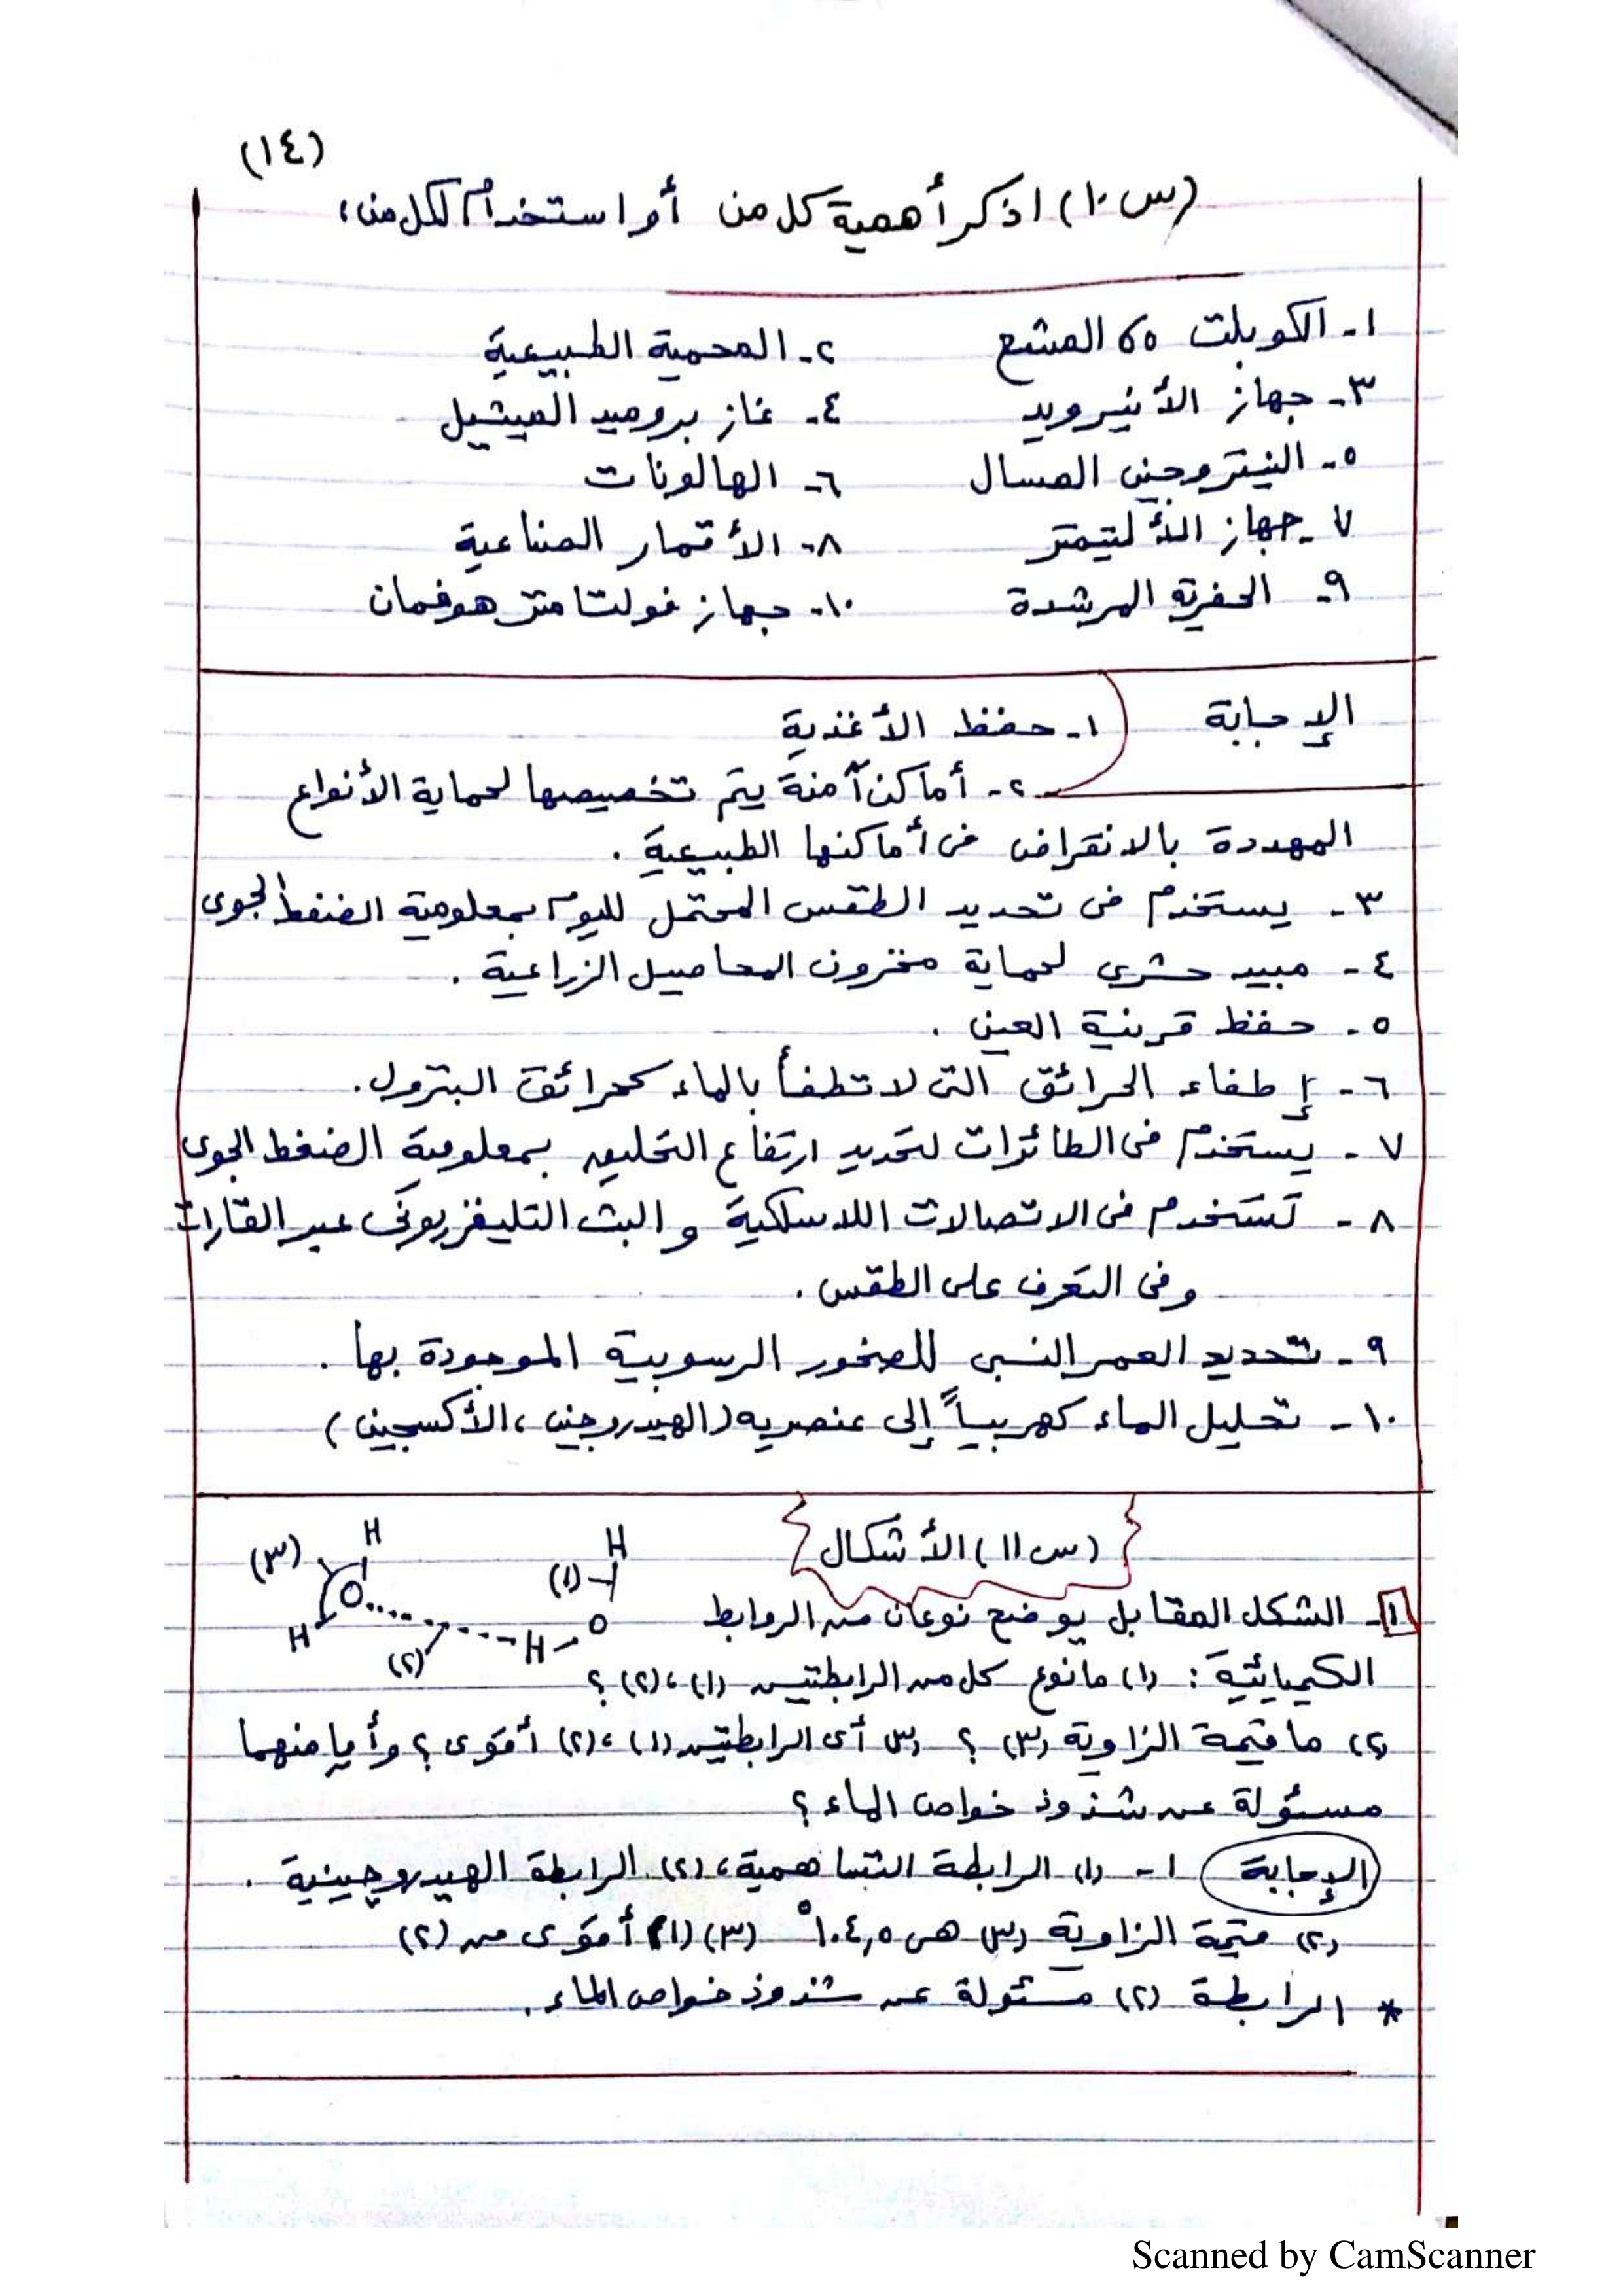 (١٤)
(س١٠) اذكر أهمية كل من أو استخدام لكل من:
١- الكوبلت ٦٠ المشع ٢- المحمية الطبيعية
٣- جهاز الأنيرويد ٤- غاز بروميد الميثيل
٥- النيتروجين المسال ٦- الهالونات
٧- جهاز الألتيمتر ٨- الأقمار الصناعية
٩- الحفرية المرشدة ١٠- جهاز فولتامتر هوفمان
الإجابة ١- حفظ الأغذية
٢- أماكن آمنة يتم تخصيصها لحماية الأنواع
المهددة بالانقراض فى أماكنها الطبيعية .
٣- يستخدم فى تحديد الطقس المحتمل لليوم بمعلومية الضغط الجوى
٤- مبيد حشرى لحماية مخزون المحاصيل الزراعية .
٥- حفظ قرنية العين .
٦- إطفاء الحرائق التى لا تطفأ بالماء كحرائق البترول.
٧- يستخدم فى الطائرات لتحديد ارتفاع التحليق بمعلومية الضغط الجوى
٨- تستخدم فى الاتصالات اللاسلكية والبث التليفزيونى عبر القارات
وفى التعرف على الطقس .
٩- تحديد العمر النسبى للصخور الرسوبية الموجودة بها .
١٠- تحليل الماء كهربياً إلى عنصريه (الهيدروجين، الأكسجين)
(س١١) الأشكال
H H
(٣) (١)
O
H (٢) H O
١- الشكل المقابل يوضح نوعان من الروابط
الكيميائية: (١) ما نوع كل من الرابطتين (١)، (٢) ؟
(٢) ما قيمة الزاوية (٣) ؟ (٣) أى الرابطتين (١)، (٢) أقوى؟ وأيا منهما
مسئولة عن شذوذ خواص الماء ؟
الإجابة ١- (١) الرابطة التساهمية، (٢) الرابطة الهيدروجينية .
(٢) قيمة الزاوية (٣) هى ١٠٤,٥° (٣) (١) أقوى من (٢)
* الرابطة (٢) مسئولة عن شذوذ خواص الماء .
Scanned by CamScanner